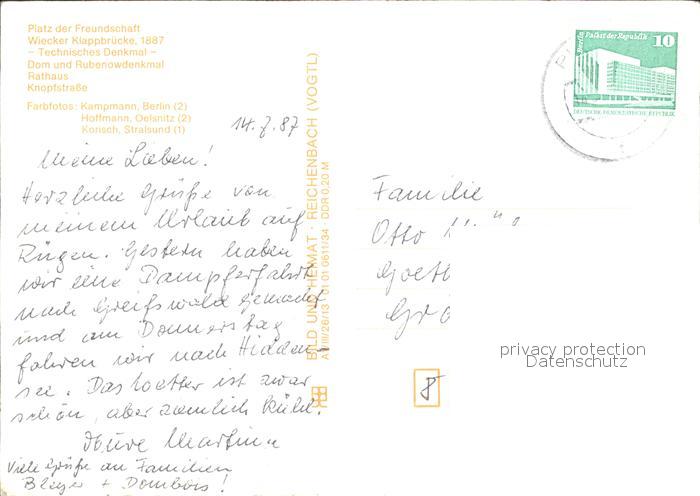 Platz der Freundschaft
Wiecker Klappbrücke, 1887
– Technisches Denkmal –
Dom und Rubenowdenkmal
Rathaus
Knopfstraße
Farbfotos: Kampmann, Berlin (2)
Hoffmann, Oelsnitz (2)
Korisch, Stralsund (1)
14.7.87
Meine Lieben!
Herzliche Grüße von
meinem Urlaub auf
Rügen. Gestern haben
wir eine Dampferfahrt
nach Greifswald gemacht
und am Donnerstag
fahren wir nach Hidden-
see. Das Wetter ist zwar
schön, aber ziemlich kühl.
Eure Martina
Viele Grüße an Familien
+
BILD UND HEIMAT · REICHENBACH (VOGTL)
A1/III/26/13 01 01 0611/34 DDR 0,20 M
Berlin Palast der Republik
10
DEUTSCHE DEMOKRATISCHE REPUBLIK
Familie
Otto
8
privacy protection
Datenschutz